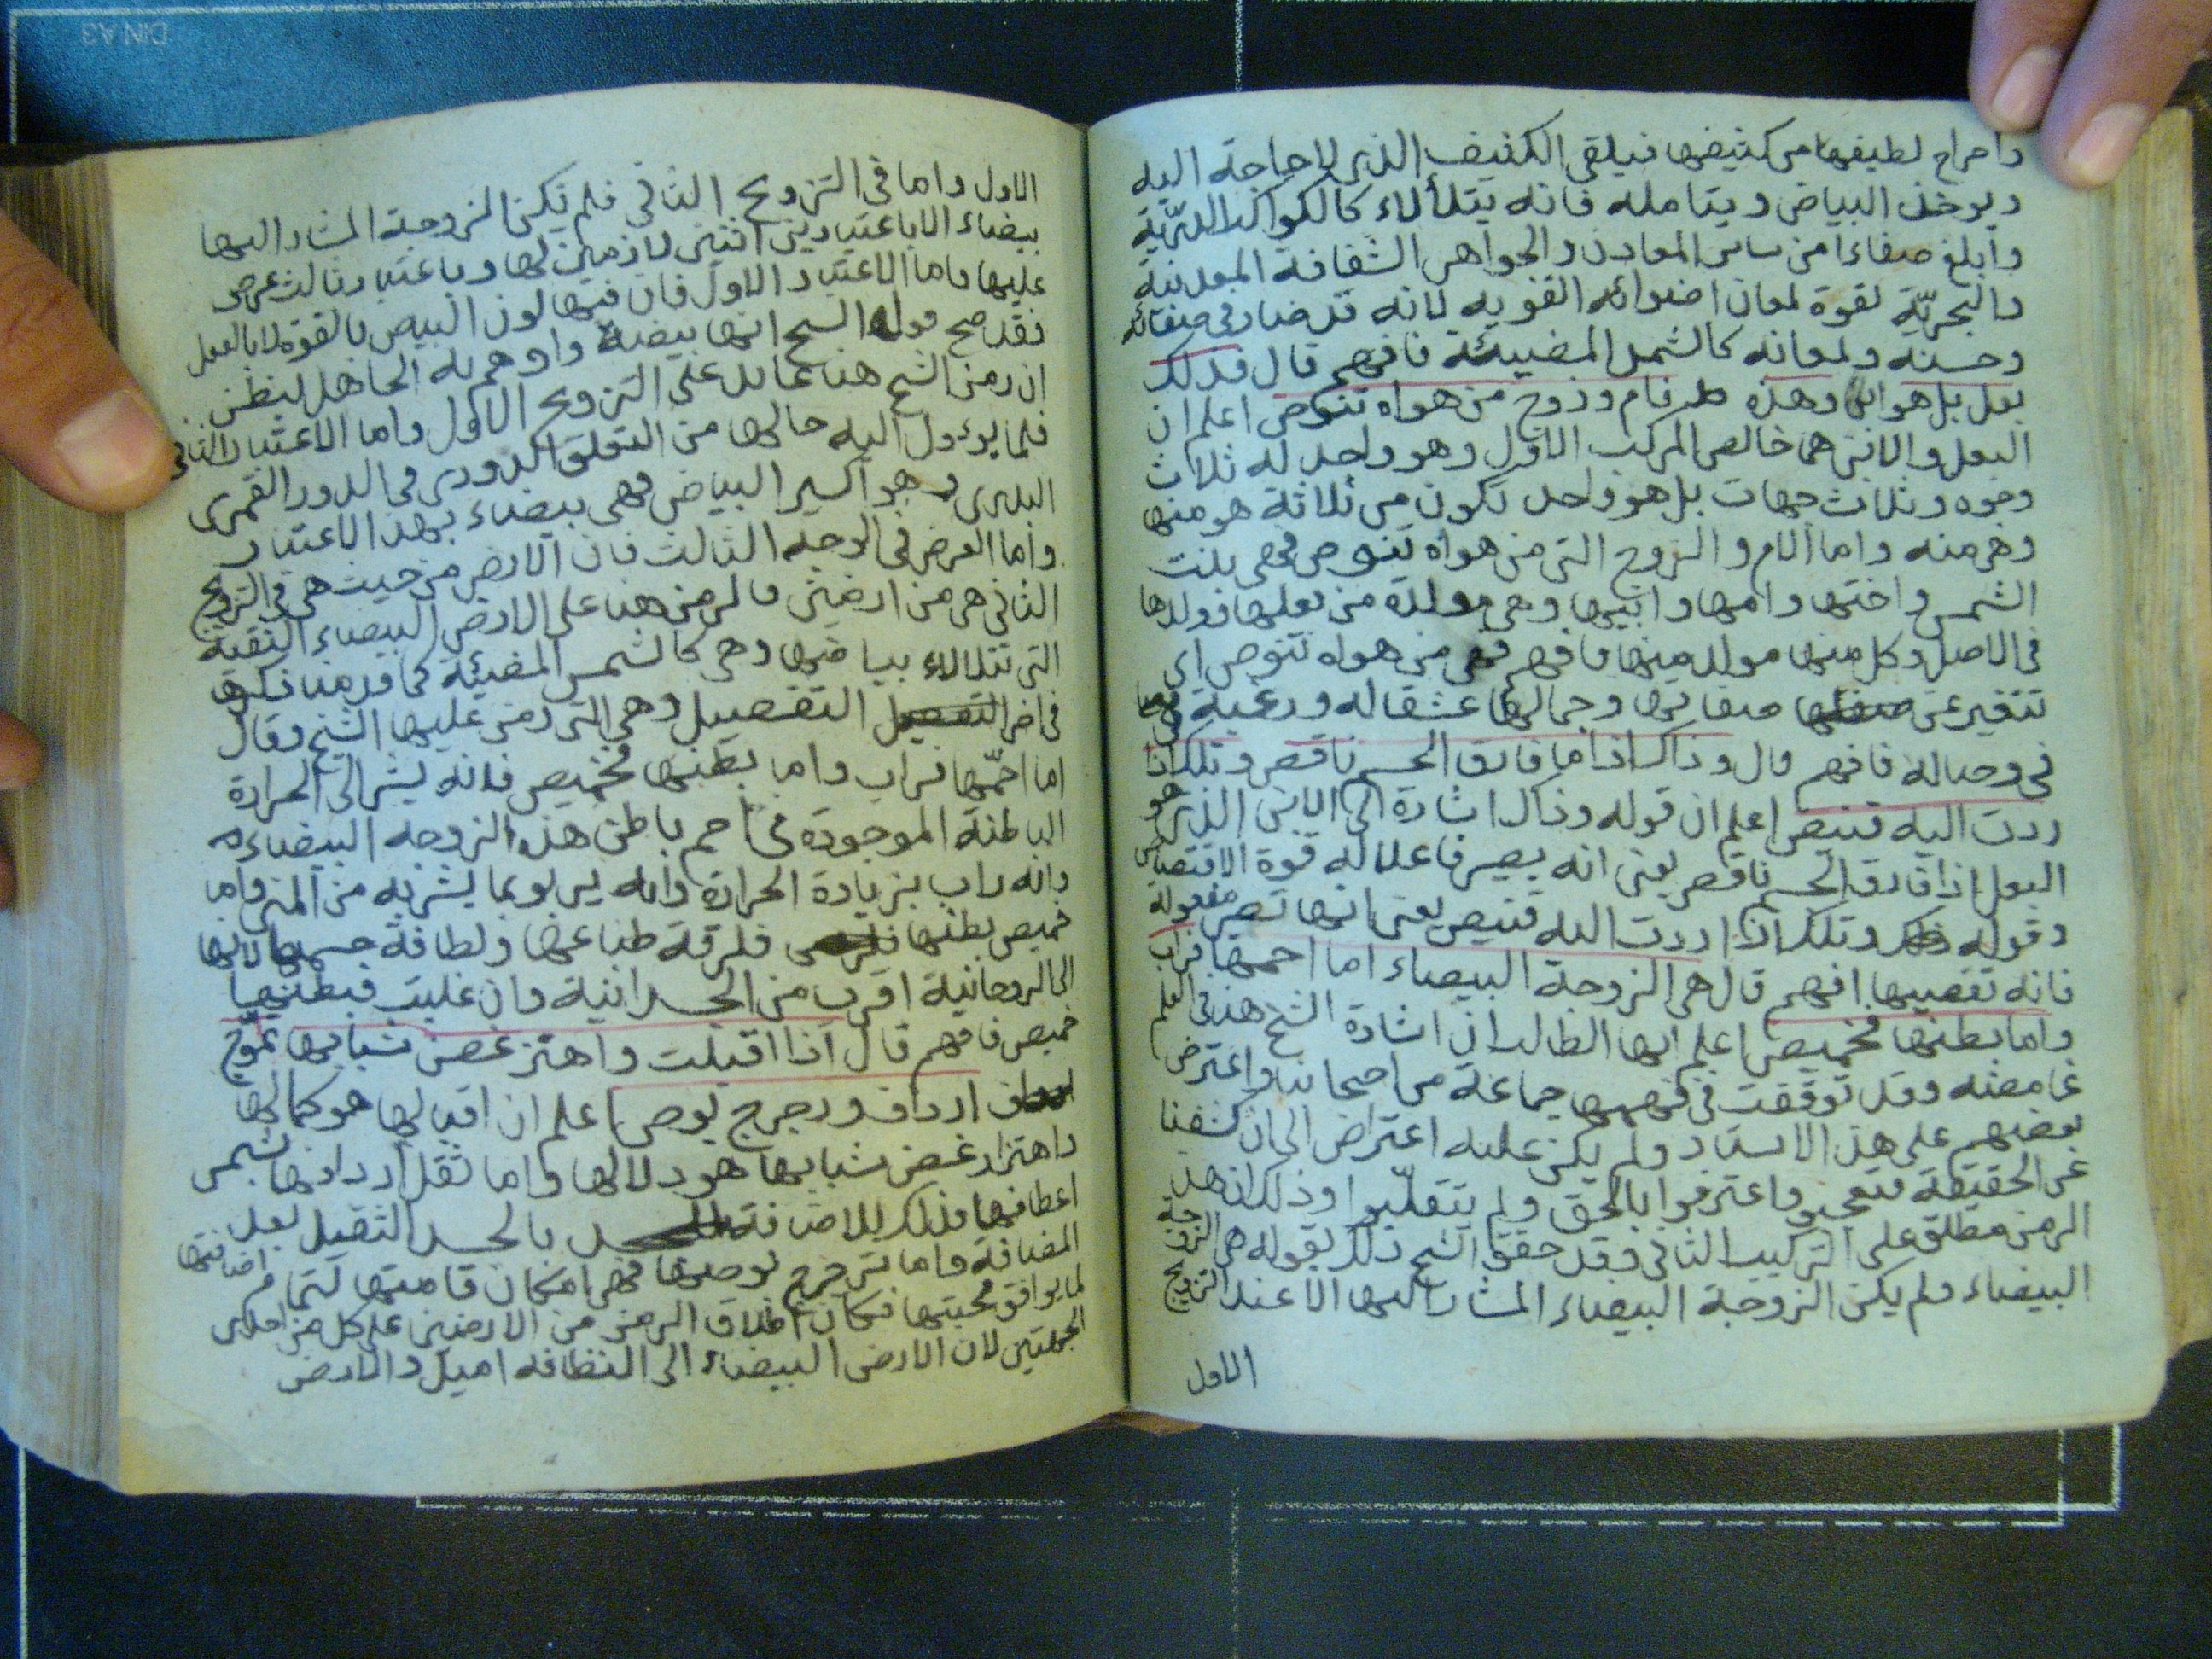 واخراج لطيفها من كثيفها فيلقى الكثيف الذى لا حاجة اليه
ويوخذ البياض ويتامله فانه يتلألاء كالكواكب الدرّيّة
وأبلغ صفاءا من سائر المعادن والجواهر الشفافة المعدنية
والبحريّة لقوة لمعان اضوائه القويه لانه قد صار فى صفائه
وحسنه ولمعانه كالشمس المضيئة فافهم قال فذلك
بعل بل هو ابن وهذه فام وزوج من هواه تنوص اعلم ان
البعل والابن هما خالص المركب الاول وهو واحد له ثلاث
وجوه وثلاث جهات بل هو واحد تكون من ثلاثة هو منها
وهى منه واما الام والزوج التى من هواه تنوص فهى بنت
الشمس واختها وامها وابيها وهى مولدة من بعلها وولدها
فى الاصل وكل منها مولد منها فافهم من هواه تنوص اى
تتغير عن صفائها وجمالها عشقا له ورغبة
فى وصاله فافهم قال وذاك اذا ما فارق الجسم ناقص وتلك اذا
ردت اليه قنيص اعلم ان قوله وذاك اشارة الى الابن الذى هو
البعل اذا فارق الجسم ناقص يعنى انه يصير فاعلا له قوة الاقتصاص
وقوله وتلك اذا ردت اليه قنيص يعنى انها تصير مفعولة
فانه تقصيها افهم قال هى الزوجة البيضاء اما احمها فراب
واما بطنها فخميص اعلم ايها الطالب ان اشارة الشيخ هذه فى العلم
غامضه وقد توقفت فى فهمها جماعة من اصحابنا واعترض
بعضهم على هذا الاستاد ولم يكن عليه اعتراض الى ان كشفنا
عن الحقيقة فتعجبو واعترفوا بالحق ولم يتقلبوا وذلك ان هذا
الرمز مطلق على التركيب الثانى وقد حقق الشيخ ذلك بقوله هى الزوجة
البيضاء ولم يكن الزوجة البيضاء المشار اليها الا عند التزويج
الاول
الاول واما فى التزويج الثانى فلم تكن الزوجة المشار اليها
بيضاء الا باعتبارين اثنين لازمين لها وباعتبار ثالث عرض
عليها واما الاعتبار الاول فان فيها لون البيض بالقوة لا بالفعل
فقد صح قوله الشيخ انها بيضة واوهم به الجاهل ليظن
ان رمز الشيخ هنا عائد على التزويج الاول واما الاعتبار الثانى
فلما يوءول اليه حالها من التعلق الدورى فى الدور القمرى
البدرى وهو اكسير البياض فهى بيضاء بهذا الاعتبار
واما العرض فى الوجه الثالث فان الارض من حيث هى فى التزويج
الثانى هى من ارضين فالرمز هنا على الارض البيضاء النقية
التى تتلالاء بياضها وهى كالشمس المضيئة كما قدمنا ذكره
فى اخر التفصيل وهى التى رمز عليها الشيخ وقال
اما احمّها فراب واما بطنها فخميص فانه يشير الى الحرارة
الباطنة الموجودة فى احم باطن هذه الزوجه البيضاء
وانه راب بزيادة الحرارة وانه يربو بما يشربه من المنى واما
خميص بطنها فلرقة طباعها ولطافة جسمها لانها
الى الروحانية اقرب من الجسدانية وان غلبت فبطنها
خميص فافهم قال اذا اقبلت واهتز غصن شبابها تموّج
ارداف ورجرج بوص اعلم ان اقبالها هو كمالها
واهتزاز غصن شبابها هو دلالها واما ثقل اردافها
اعطافها فذلك للاضافة بالجسد الثقيل بعد
المضافة واما ترجرج بوصها فهى امكان قامتها لتمام اضافتها
لما يوافق محبتها فكان اطلاق الرمز من الارضين على كل من احدى
الجملتين لان الارض البيضاء الى النظافه اميل والارض